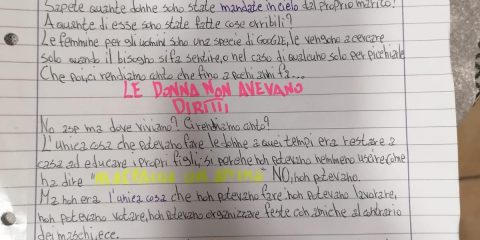 Sapete quante donne sono state mandate in cielo dal proprio marito?
A quante di esse sono state fatte cose orribili?
Le femmine per gli uomini sono una specie di Google, le vengono a cercare
solo quando il bisogno si fa sentire, o nel caso di qualcuno solo per picchiarle
Che poi, ci rendiamo conto che fino a pochi anni fa...
LE DONNA NON AVEVANO
DIRITTI
No asp ma dove viviamo? Ci rendiamo conto?
L'unica cosa che potevano fare le donne a quei tempi era restare a
casa ad educare i propri figli, si perche non potevano nemmeno uscire come
ha dire NO, non potevano.
Ma non era l'unica cosa che non potevano fare, non potevano lavorare,
non potevano votare, non potevano organizzare feste con amiche al contrario
dei maschi, ecc.